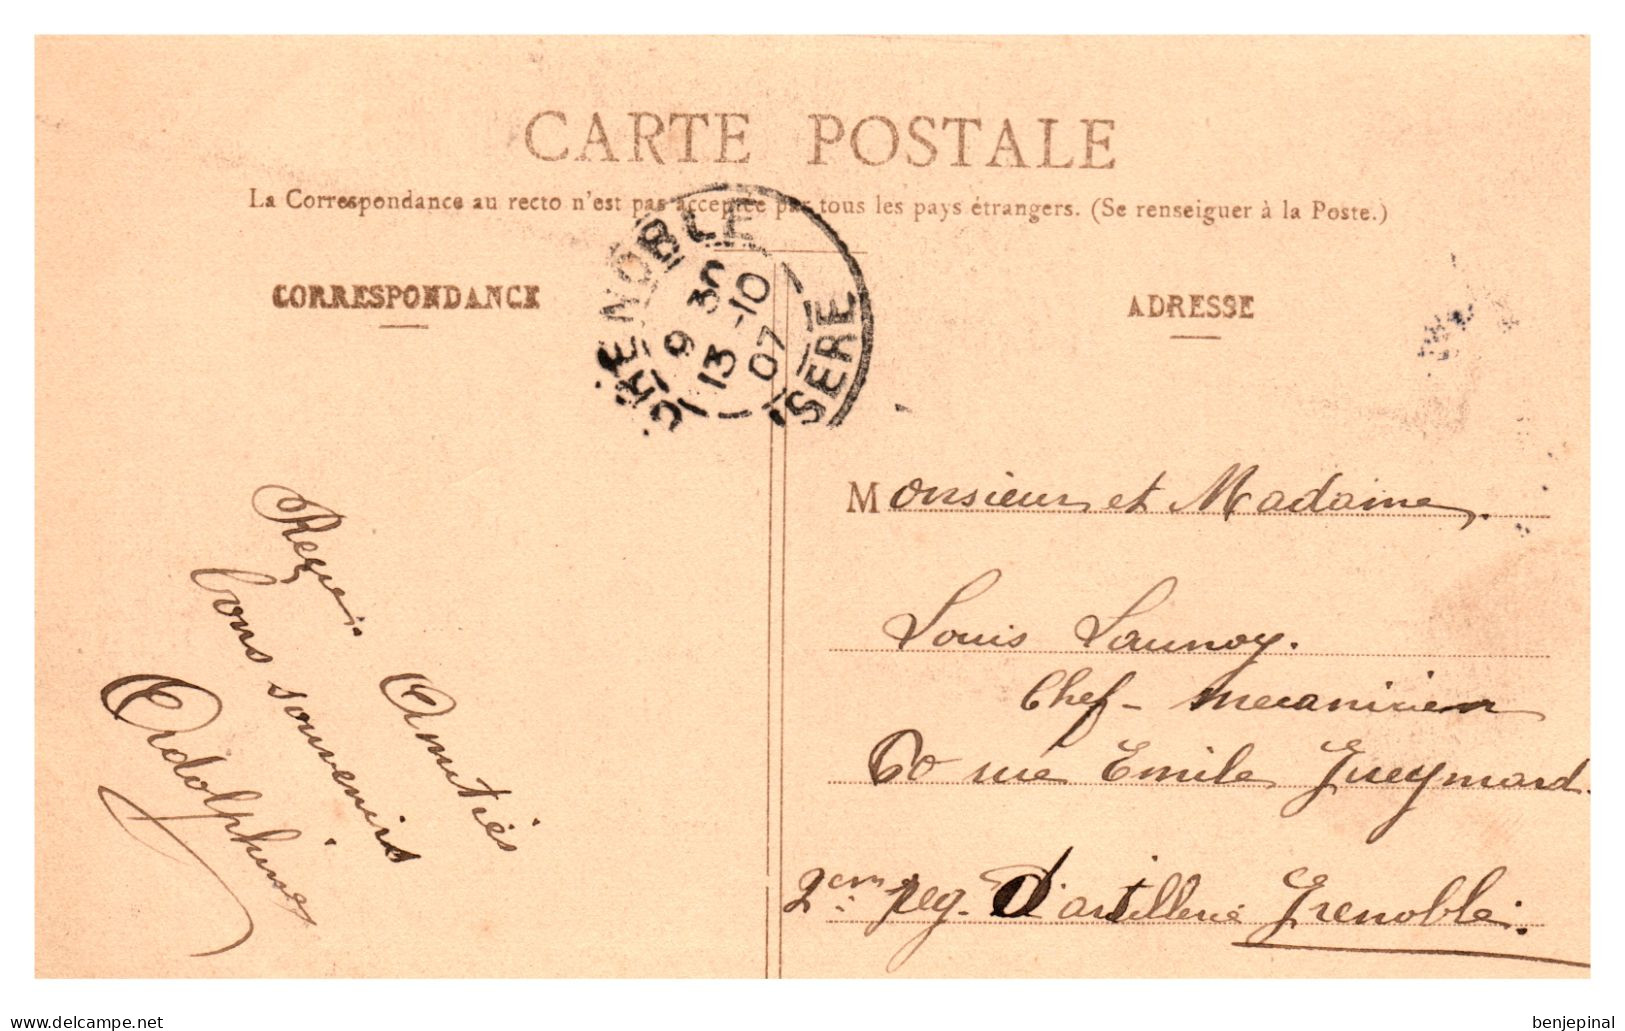 CARTE POSTALE
La Correspondance au recto n'est pas acceptée par tous les pays étrangers. (Se renseigner à la Poste.)
GRENOBLE
9 30
13 -10
07
ISERE
CORRESPONDANCE
bons souvenirs
Amitiés
Adolphine
ADRESSE
Monsieur et Madame
Louis Launoy.
Chef - mecanicien
60 rue Emile Gueymard.
2em reg. d'artillerie Grenoble.
delcampe.net
benjepinal